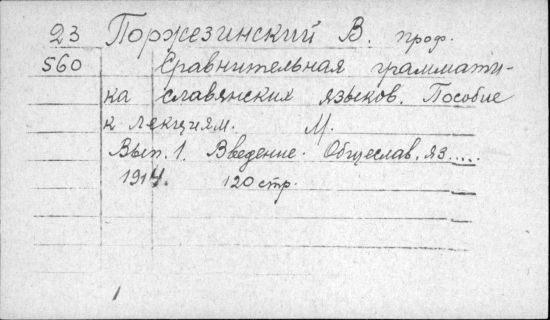 23 Поржезинский В. проф.
560 Сравнительная граммати-
ка славянских языков. Пособие
к лекциям. М.
Вып. 1. Введение. Общеслав. яз.....
1914. 120 стр.